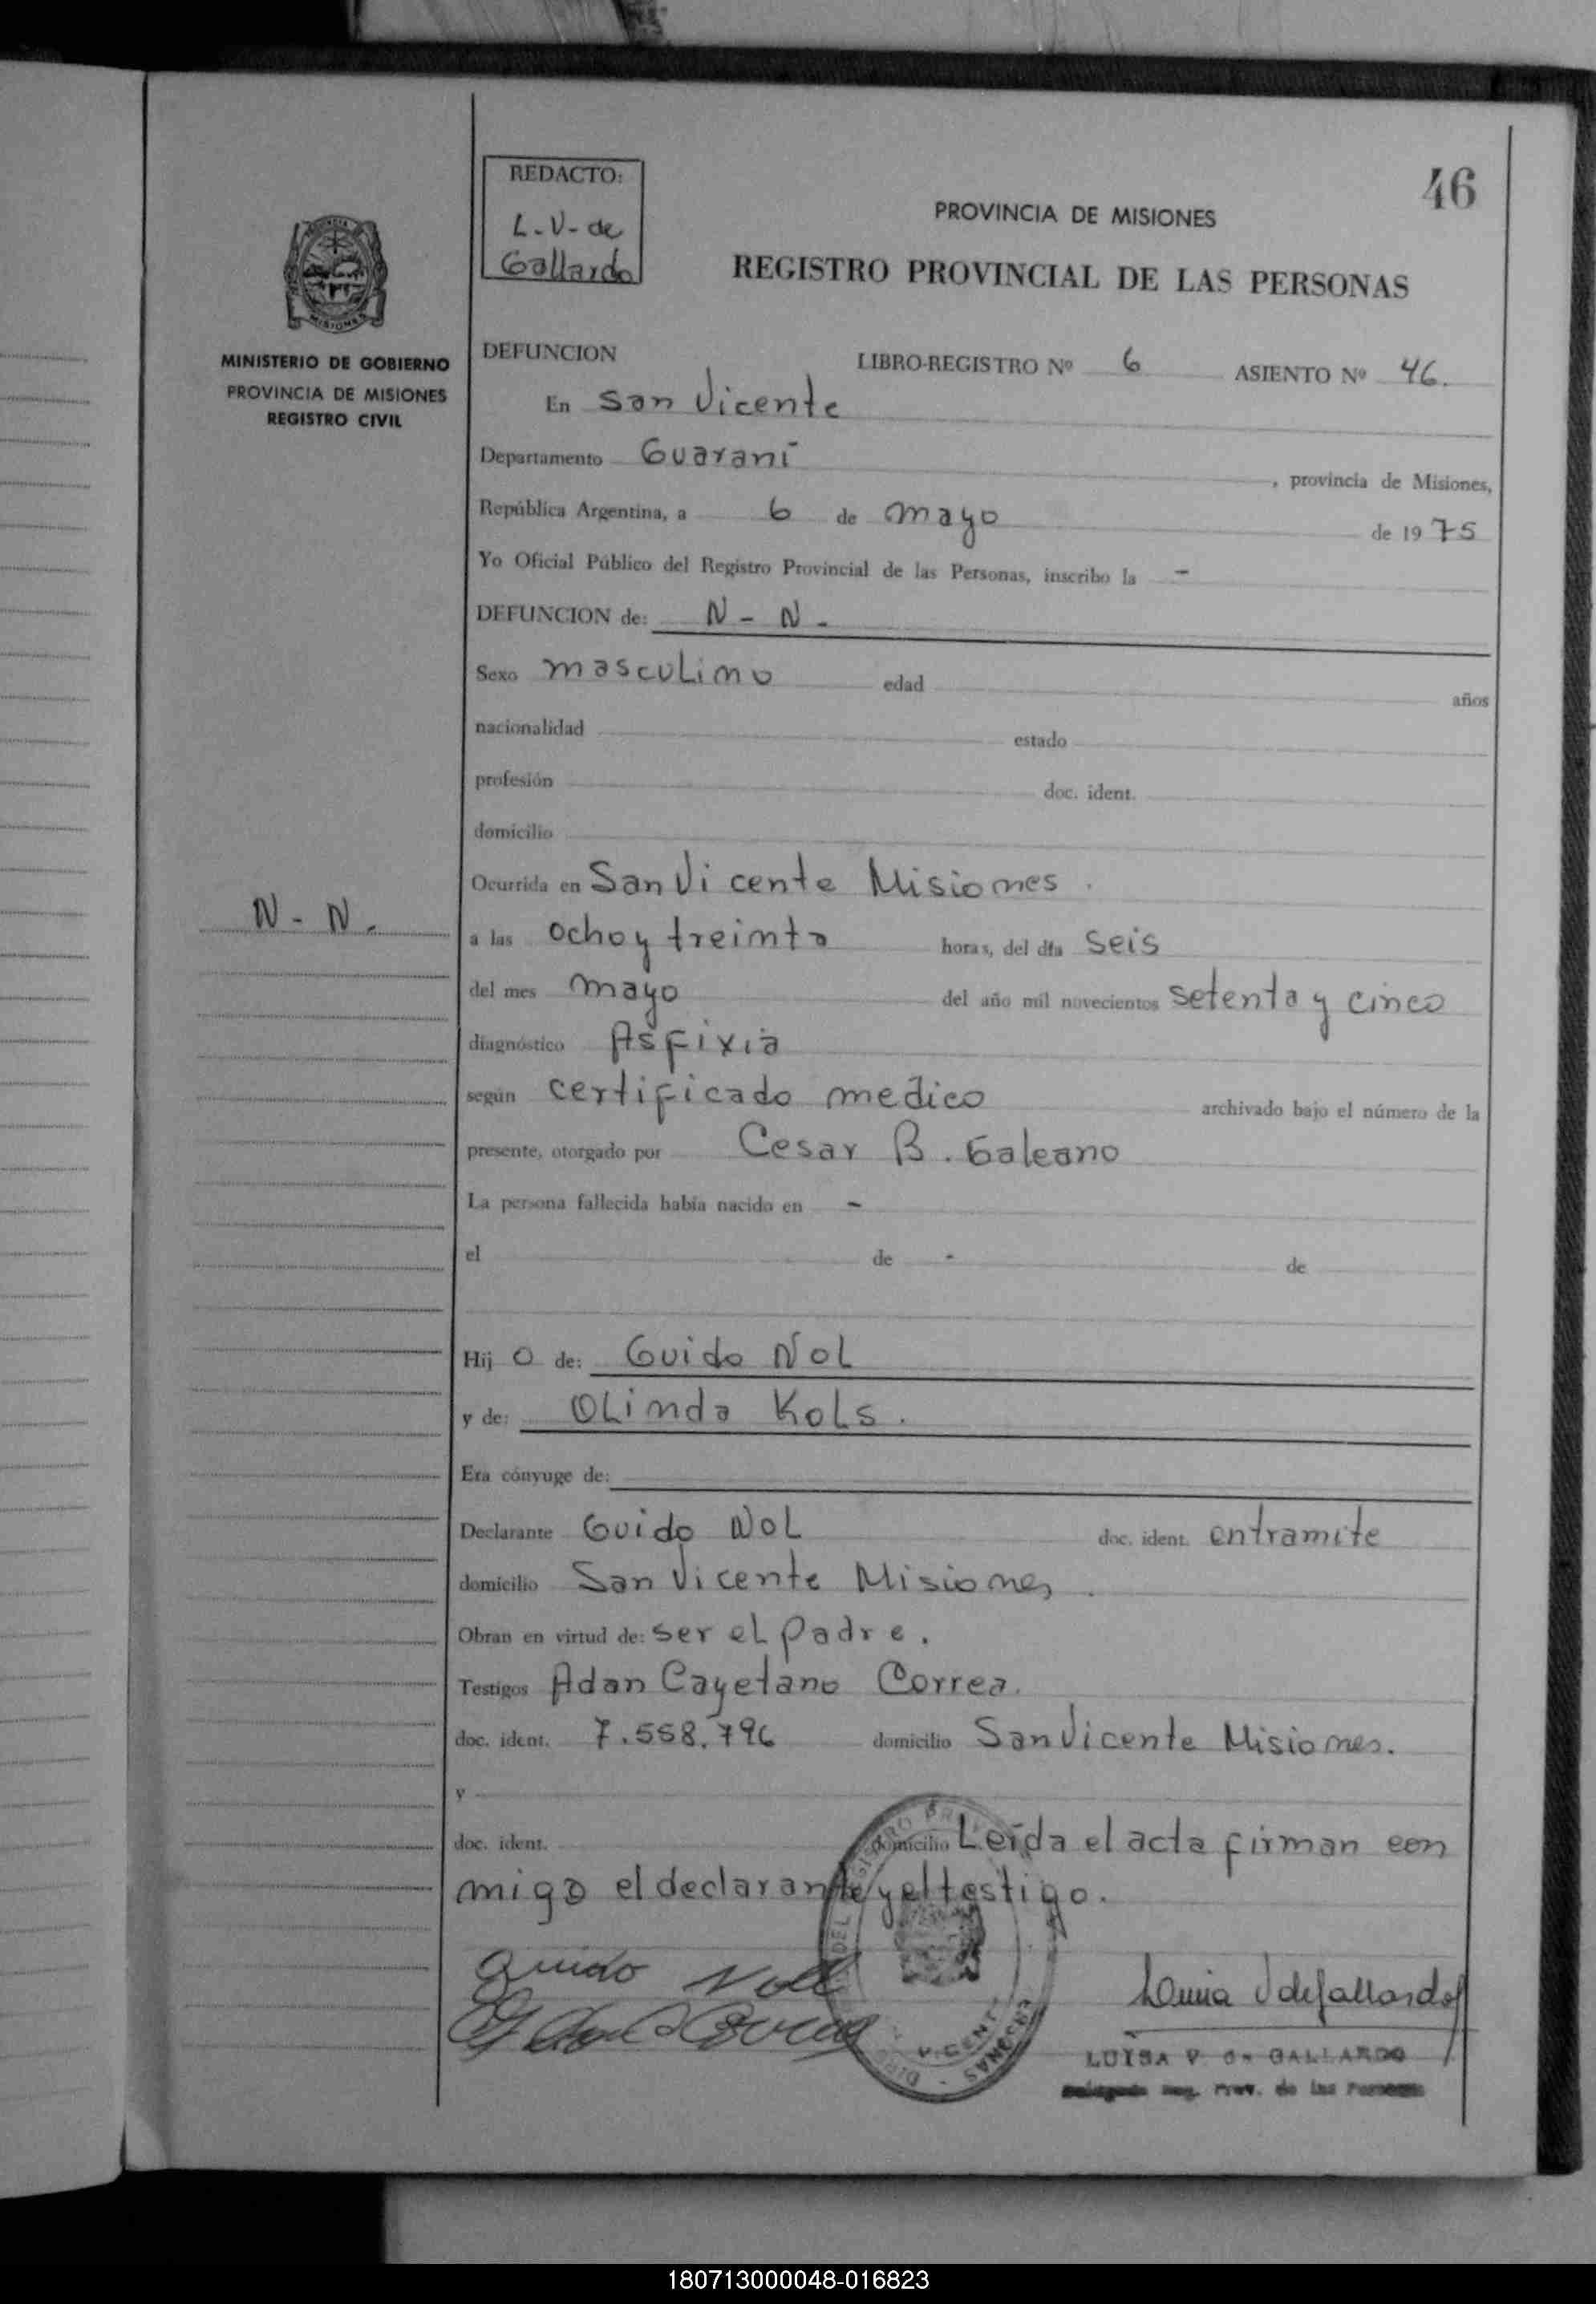 46
REDACTO:
L-V-de
Gallardo
PROVINCIA DE MISIONES
REGISTRO PROVINCIAL DE LAS PERSONAS
MISIONES
MINISTERIO DE GOBIERNO
PROVINCIA DE MISIONES
REGISTRO CIVIL
DEFUNCION LIBRO-REGISTRO Nº 6 ASIENTO Nº 46.
En San Vicente
Departamento Guaraní, provincia de Misiones,
República Argentina, a 6 de mayo de 1975
Yo Oficial Público del Registro Provincial de las Personas, inscribo la -
DEFUNCION de: N - N -
Sexo masculino edad años
nacionalidad estado
profesión doc. ident.
domicilio
Ocurrida en San Vicente Misiones.
N - N.
a las ocho y treinta horas, del día seis
del mes mayo del año mil novecientos setenta y cinco
diagnóstico Asfixia
según certificado medico archivado bajo el número de la
presente, otorgado por Cesar B. Galeano
La persona fallecida había nacido en -
el de - de
Hijo de: Guido Nol
y de: Olinda Kols.
Era cónyuge de:
Declarante Guido Nol doc. ident. entramite
domicilio San Vicente Misiones.
Obran en virtud de: ser el padre.
Testigos Adan Cayetano Correa.
doc. ident. 7.558.796 domicilio San Vicente Misiones.
y
doc. ident. domicilio Leída el acta firman con
migo el declarante y el testigo.
Guido Noll
Luisa V de Gallardo
LUISA V. de GALLARDO
Delegada Reg. Prov. de las Personas
180713000048-016823